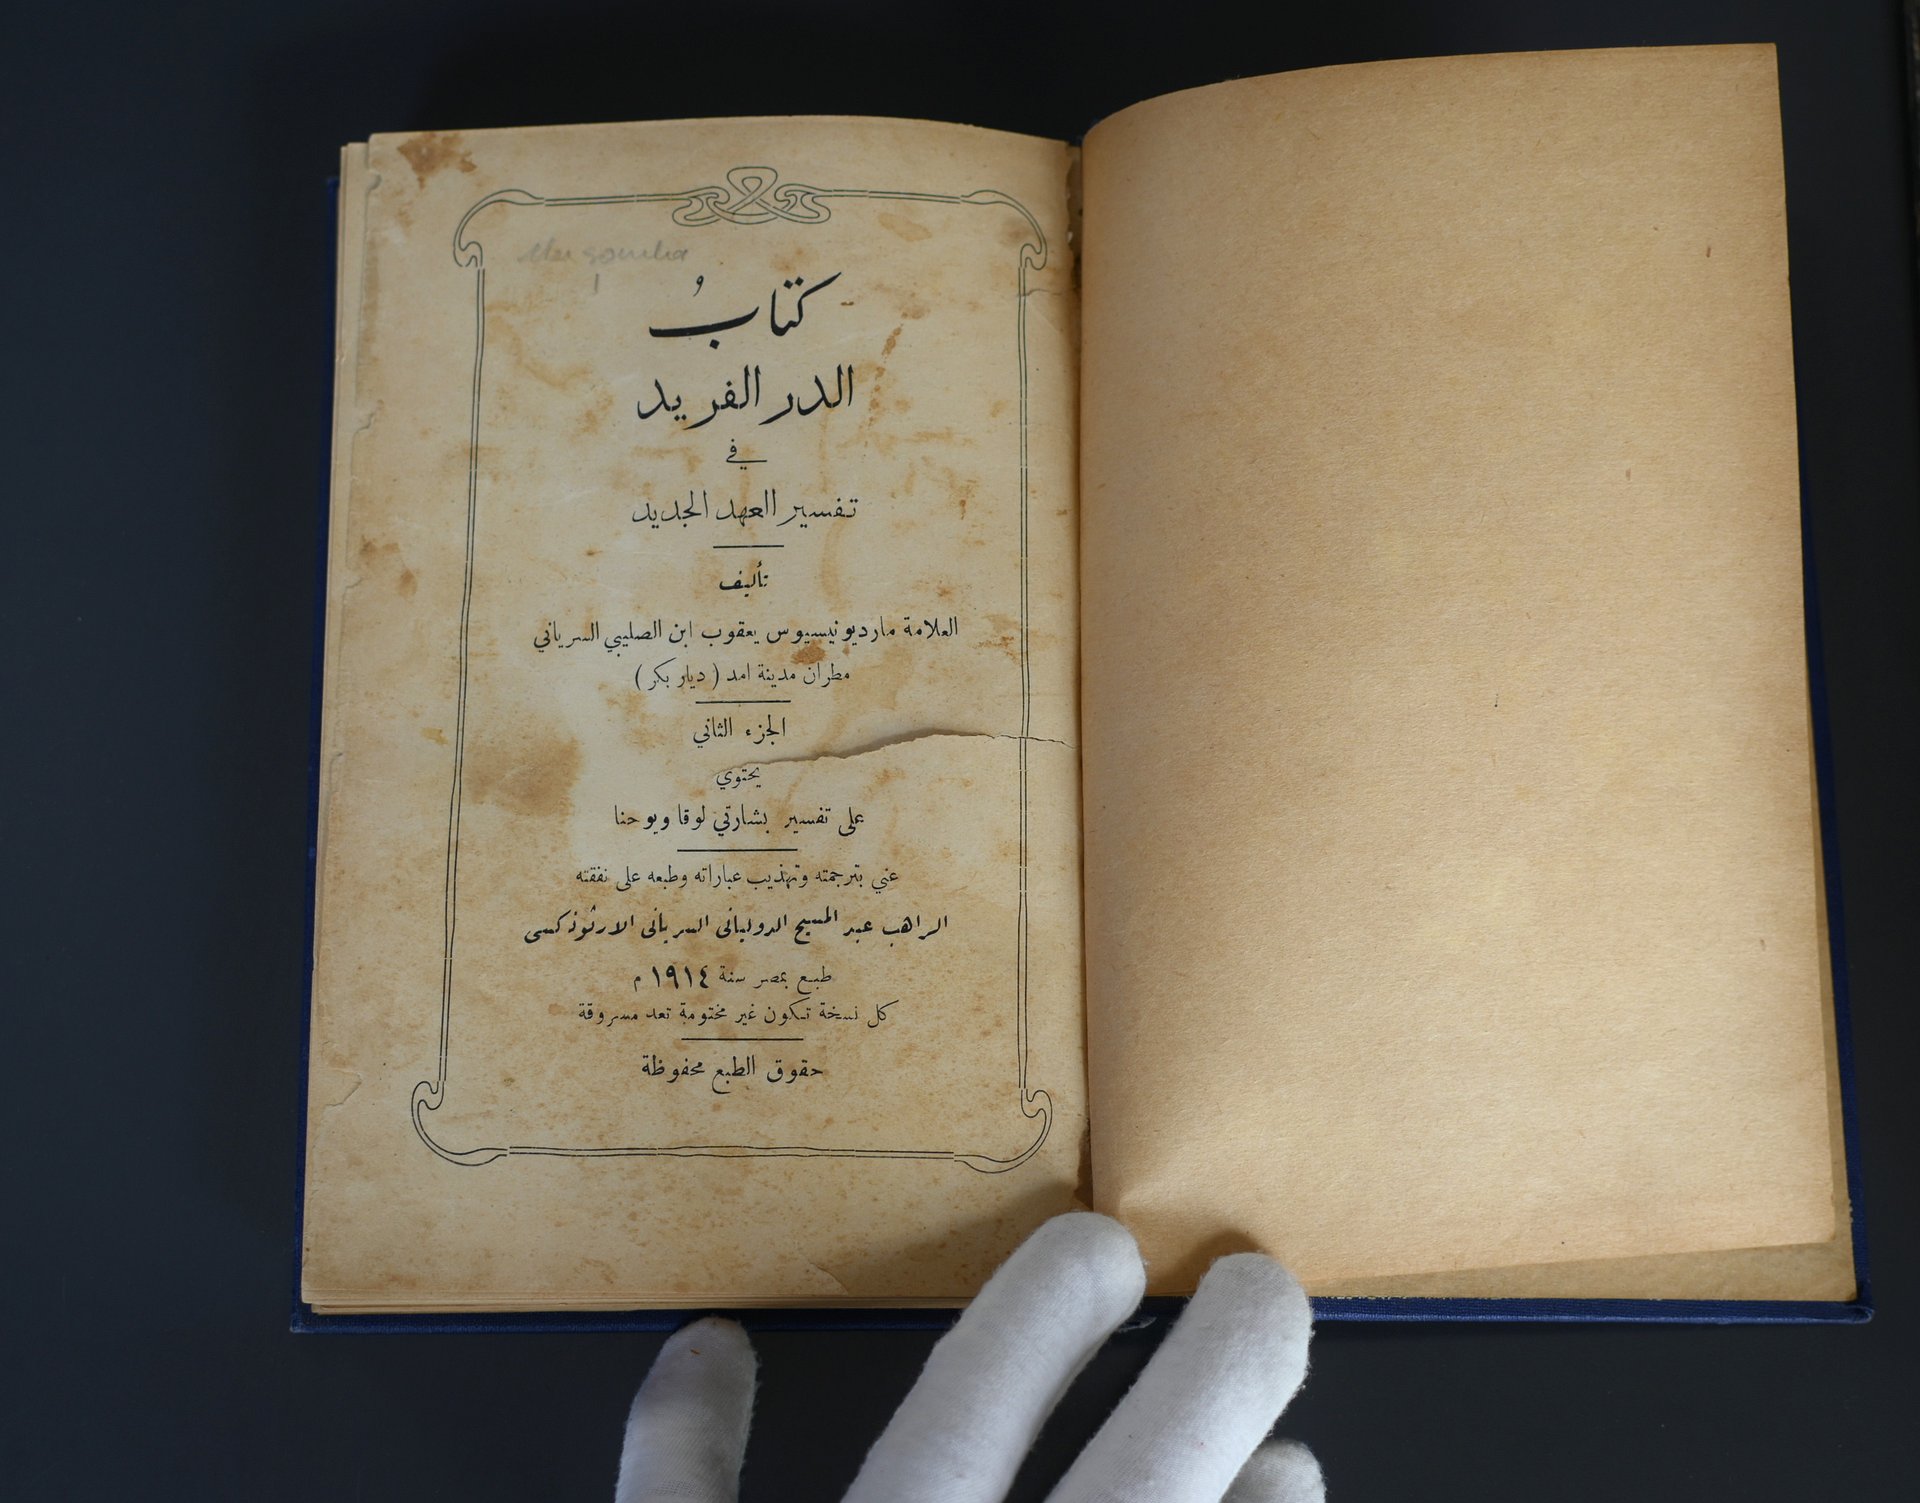 كتابُ
الدر الفريد
في
تفسير العهد الجديد
تأليف
العلامة مار ديونيسيوس يعقوب ابن الصليبي السرياني
مطران مدينة امد ( ديار بكر )
الجزء الثاني
يحتوي
على تفسير بشارتي لوقا ويوحنا
عني بترجمته وتهذيب عباراته وطبعه على نفقته
الراهب عبد المسيح الدولبانى السريانى الارثوذكسى
طبع بمصر سنة ١٩١٤ م
كل نسخة تكون غير مختومة تعد مسروقة
حقوق الطبع محفوظة